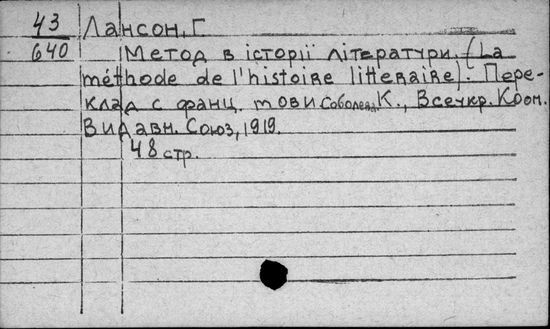 43 Лансон, Г.
640 Метод в історії літератури. (La
méthode de l'histoire litteraire). Пере-
клад с франц. мови К., Всеукр. Кооп.
Видавн. Союз, 1919.
48 стр.